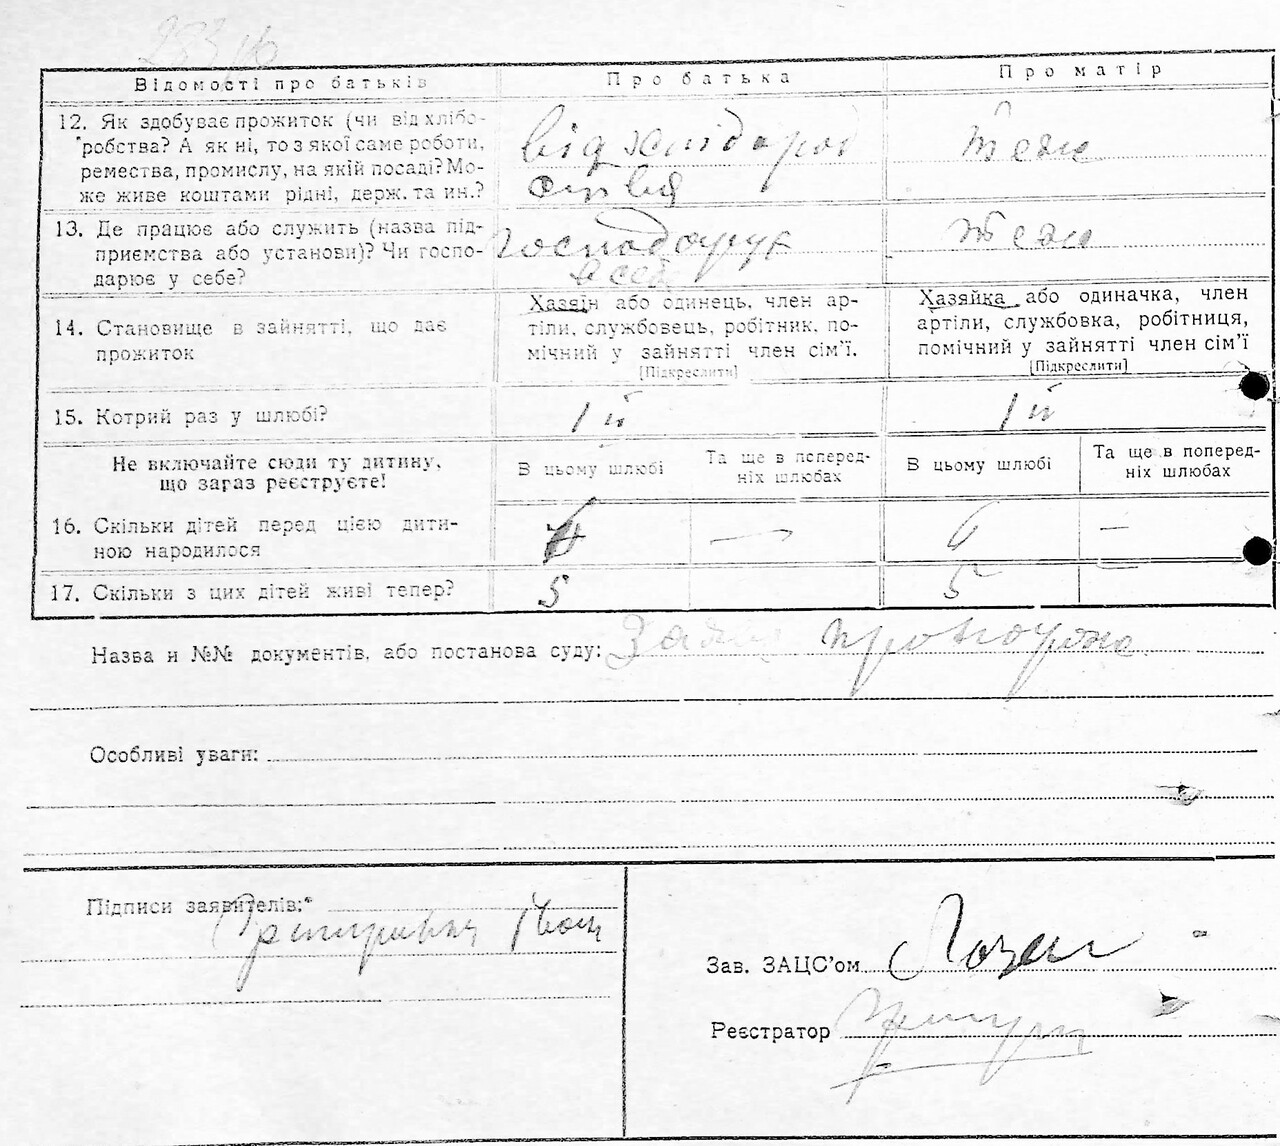 Відомості про батьків
Про батька
Про матір
12. Як здобуває прожиток (чи від хлібо-
робства? А як ні, то з якої саме роботи,
ремества, промислу, на якій посаді? Мо-
же живе коштами рідні, держ. та ин.?
від
теж
13. Де працює або служить (назва під-
приємства або установи)? Чи госпо-
дарює у себе?
господарує
в себе
теж
14. Становище в зайнятті, що дає
прожиток
Хазяїн або одинець, член ар-
тіли, службовець, робітник, по-
мічний у зайнятті член сім’ї.
[Підкреслити]
Хазяйка або одиначка, член
артіли, службовка, робітниця,
помічний у зайнятті член сім’ї
[Підкреслити]
15. Котрий раз у шлюбі?
1й
1й
Не включайте сюди ту дитину,
що зараз реєструєте!
В цьому шлюбі
Та ще в поперед-
ніх шлюбах
В цьому шлюбі
Та ще в поперед-
ніх шлюбах
16. Скільки дітей перед цією дити-
ною народилося
6
—
6
—
17. Скільки з цих дітей живі тепер?
5
5
—
Назва и №№ документів, або постанова суду:
Особливі уваги:
Підписи заявителів:*
Зав. ЗАЦС’ом
Реєстратор